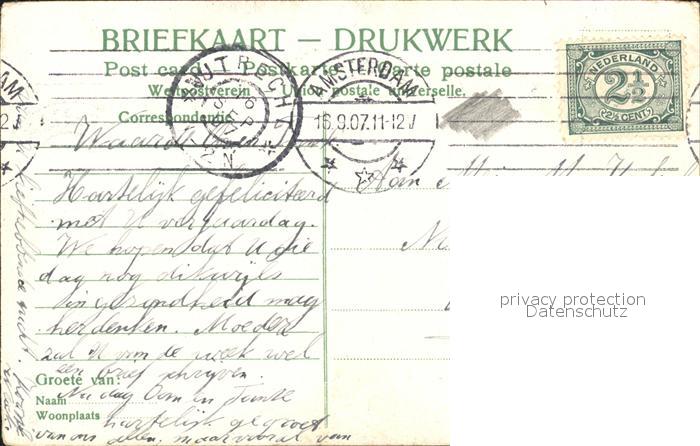 BRIEFKAART — DRUKWERK
Post carte postale
Weltpostverein Union postale universelle.
Correspondentie
UTRECHT
AMSTERDAM
16.9.07.11-12 V
NEDERLAND
2½
2½ CENT
Waarde
Aan
Hartelijk gefeliciteerd
met U verjaardag.
We hopen dat U die
dag nog dikwijls
in gezondheid mag
herdenken. Moeder
zal U van de week wel
een brief schrijven.
Groete van:
Nu dag Oom en Tante
Naam
Woonplaats
hartelijk gegroet
van ons allen, maar vooral van
Liefhebbende nicht
privacy protection
Datenschutz